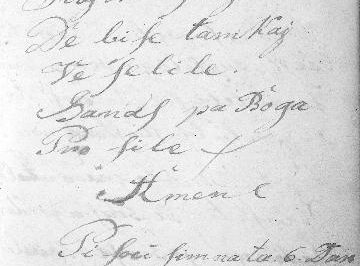 De bi ſe tam kaj
Ve ſe li le.
Sandſ pa Bòga
Pro ſi le
Amen
Pi ſou ſim na ta 6. Dan